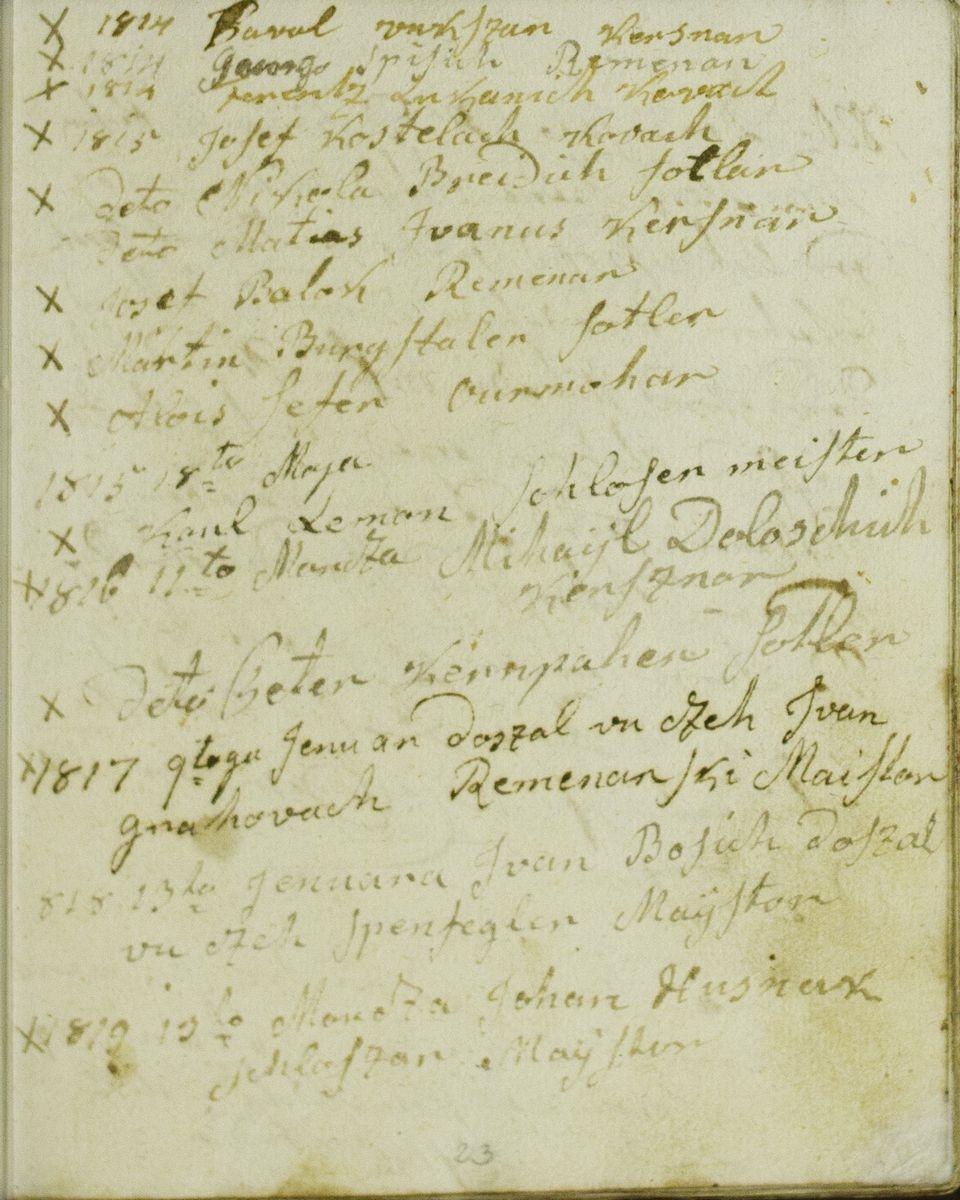 x 1814 Pavol vukszan Kersnar
x 1814 Georg Spisich Remenar
x 1814 ferentz Lukanich Kovach
x 1815 Josef Kostelach Kovach
x deto Nikola Breidich sotlar
deto Matias Ivanus Kersnar
x Josef Balok Remenar
x Martin Burgstaler sotler
x Alois sefer Vurmohar
1815 18to Maja
x Karl Leman schloser meister
x 1816 11to Martza Mihaijl Deloschich
Kersznar
x deto Peter Kernpaher sotler
x 1817 9toga Jenuar doszal vu czeh Ivan
grahovach Remenarski Maistor
818 13to Jenuara Ivan Bosich doszal
vu czeh spenfegler Maijstor
x 1819 13to Martza Johan Husnak
schloszar Maijstor
23